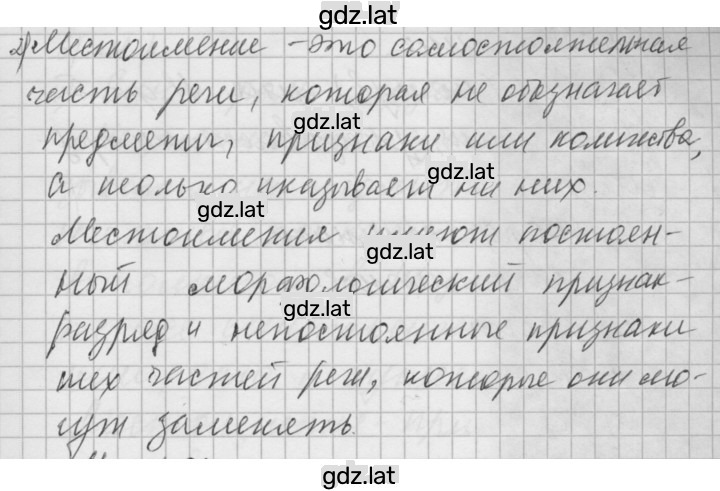 gdz.lat
2) Местоимение - это самостоятельная
часть речи, которая не обозначает
gdz.lat
предметы, признаки или количества,
gdz.lat
а только указывает на них.
gdz.lat
Местоимения имеют постоян-
gdz.lat
ный морфологический признак-
gdz.lat
разряд и непостоянные признаки
тех частей речи, которые они мо-
гут заменять.
gdz.lat